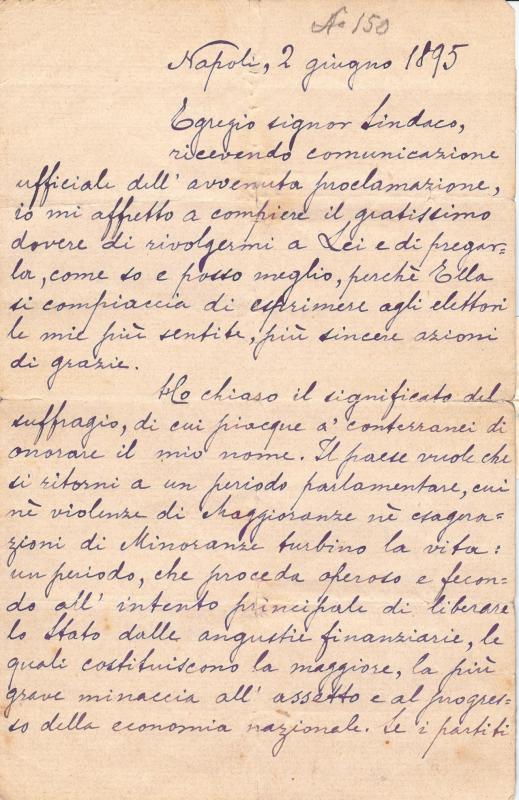 No 150
Napoli, 2 giugno 1895
Egregio signor Sindaco,
ricevendo comunicazione
ufficiale dell' avvenuta proclamazione,
io mi affretto a compiere il gratissimo
dovere di rivolgermi a Lei e di pregar-
la, come so e posso meglio, perchè Ella
si compiaccia di esprimere agli elettori
le mie più sentite, più sincere azioni
di grazie.
Ho chiaro il significato del
suffragio, di cui piacque a' conterranei di
onorare il mio nome. Il paese vuole che
si ritorni a un periodo parlamentare, cui
nè violenze di Maggioranze nè esagera-
zioni di Minoranze turbino la vita:
un periodo, che proceda operoso e fecon-
do all' intento principale di liberare
lo Stato dalle angustie finanziarie, le
quali costituiscono la maggiore, la più
grave minaccia all' assetto e al progres-
so della economia nazionale. Se i partiti